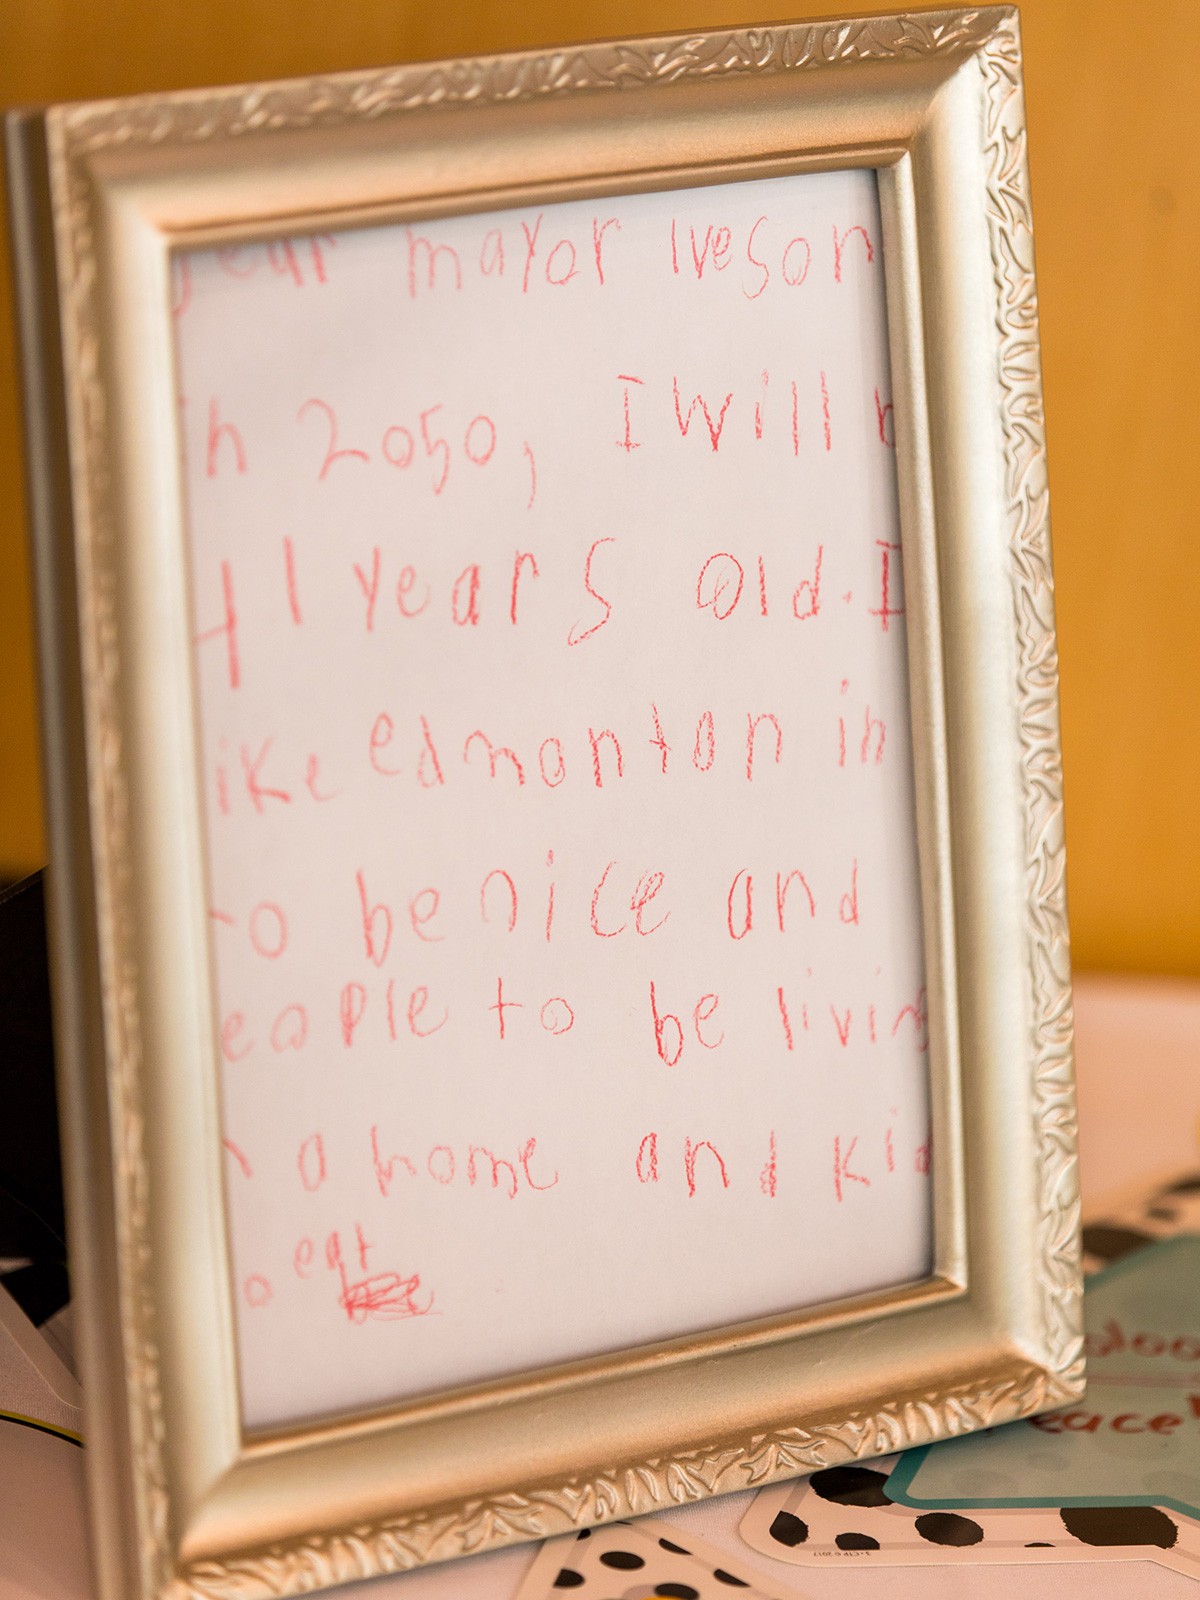 Dear mayor Iveson
in 2050, I will b
41 years old. I
like edmonton in
to be nice and
people to be living
n a home and kid
to eat
eace